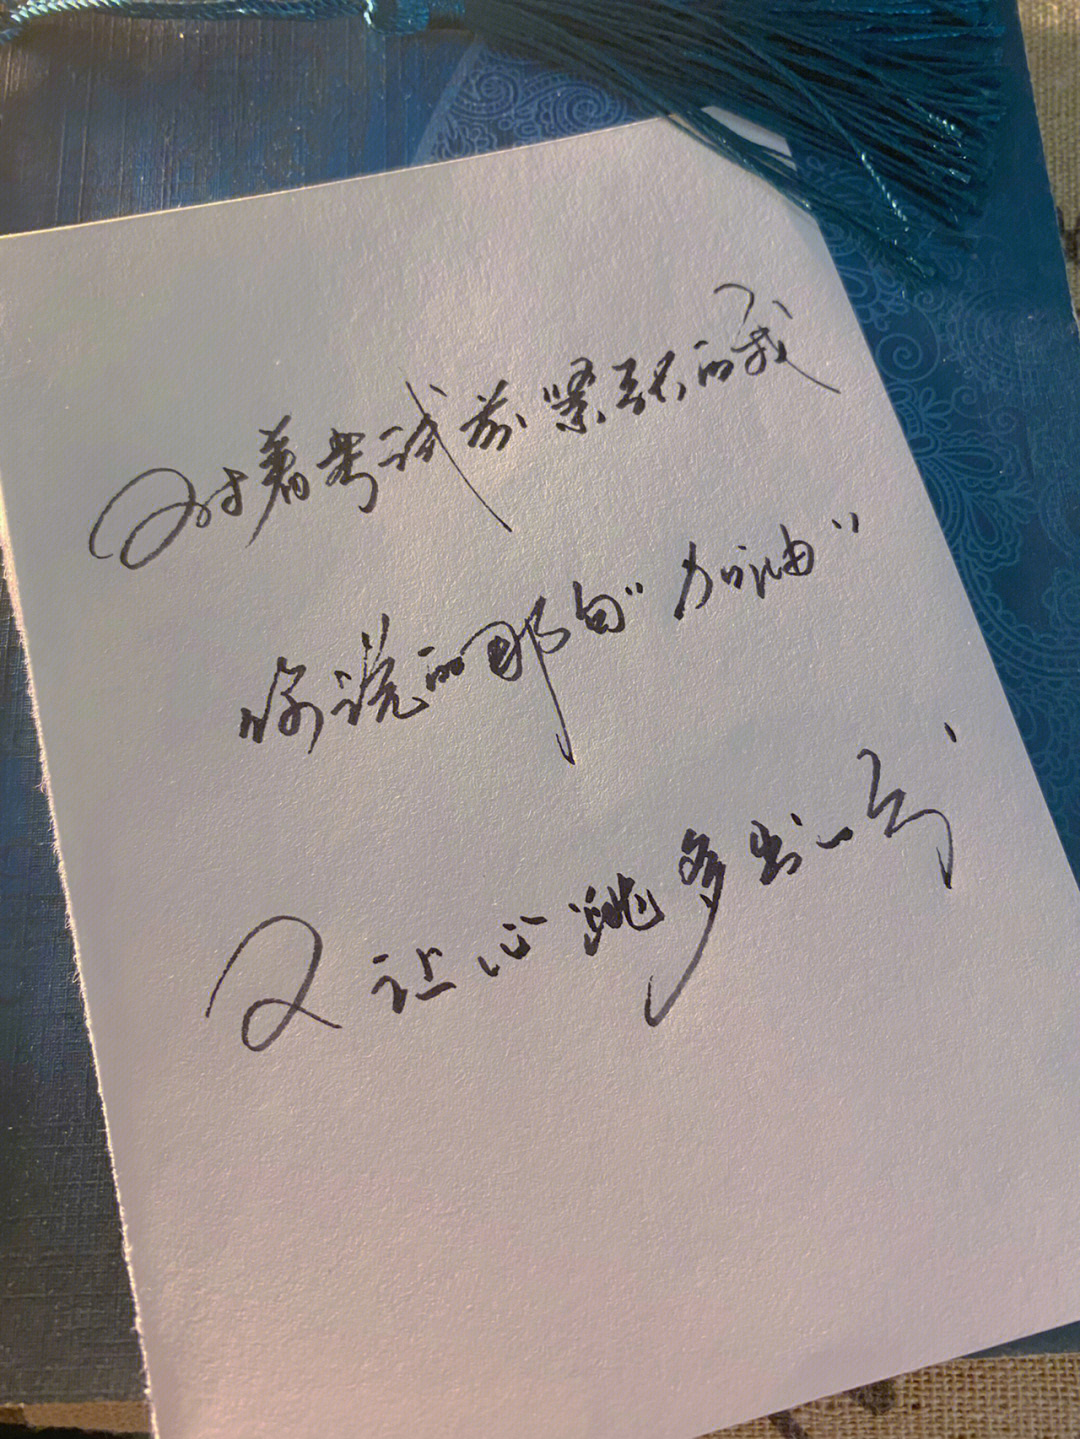 对着考试前紧张的我
你说的那句“加油”
又让心跳多出一分